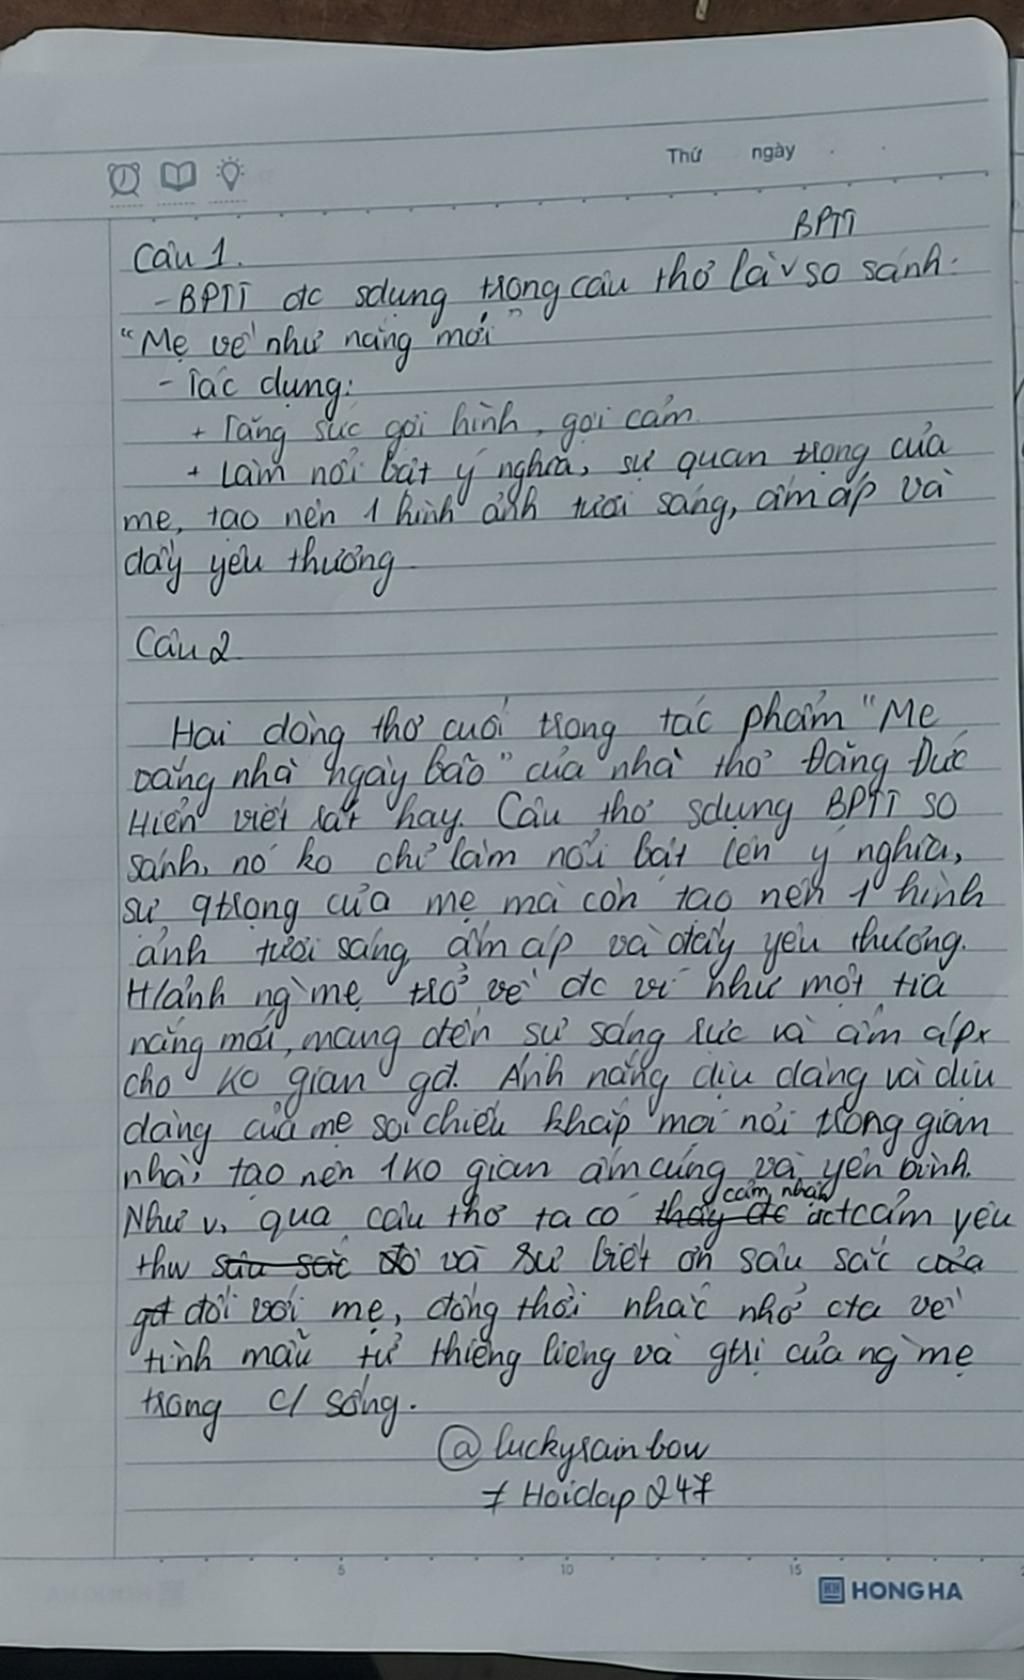 Thứ ngày
BPTT
Câu 1.
- BPTT đc sdụng trong câu thơ là ˅ so sánh:
"Mẹ về như nắng mới"
- Tác dụng:
+ Tăng sức gợi hình, gợi cảm
+ Làm nổi bật ý nghĩa, sự quan trọng của
mẹ, tạo nên 1 hình ảnh tươi sáng, ấm áp và
đầy yêu thương.
Câu 2
Hai dòng thơ cuối trong tác phẩm "Mẹ
vắng nhà ngày bão" của nhà thơ Đặng Đức
Hiển viết rất hay. Câu thơ sdụng BPTT so
sánh, nó ko chỉ làm nổi bật lên ý nghĩa,
sự qtrọng của mẹ mà còn tạo nên 1 hình
ảnh tươi sáng, ấm áp và đầy yêu thương.
H/ảnh ng` mẹ trở về đc ví như một tia
nắng mới, mang đến sự sáng rực và ấm áp
cho ko gian gđ. Ánh nắng dịu dàng và dịu
dàng của mẹ soi chiếu khắp mọi nơi trong gian
nhà, tạo nên 1 ko gian ấm cúng và yên bình.
cảm nhận
Như v, qua câu thơ ta có thấy đc đc tcảm yêu
thw sâu sắc đó và sự biết ơn sâu sắc của
gđ đối với mẹ, đồng thời nhắc nhở cta về
tình mẫu tử thiêng liêng và gtrị của ng` mẹ
trong c/ sống.
@luckyrainbow
# Hoidap247
5 10 15
HONG HA